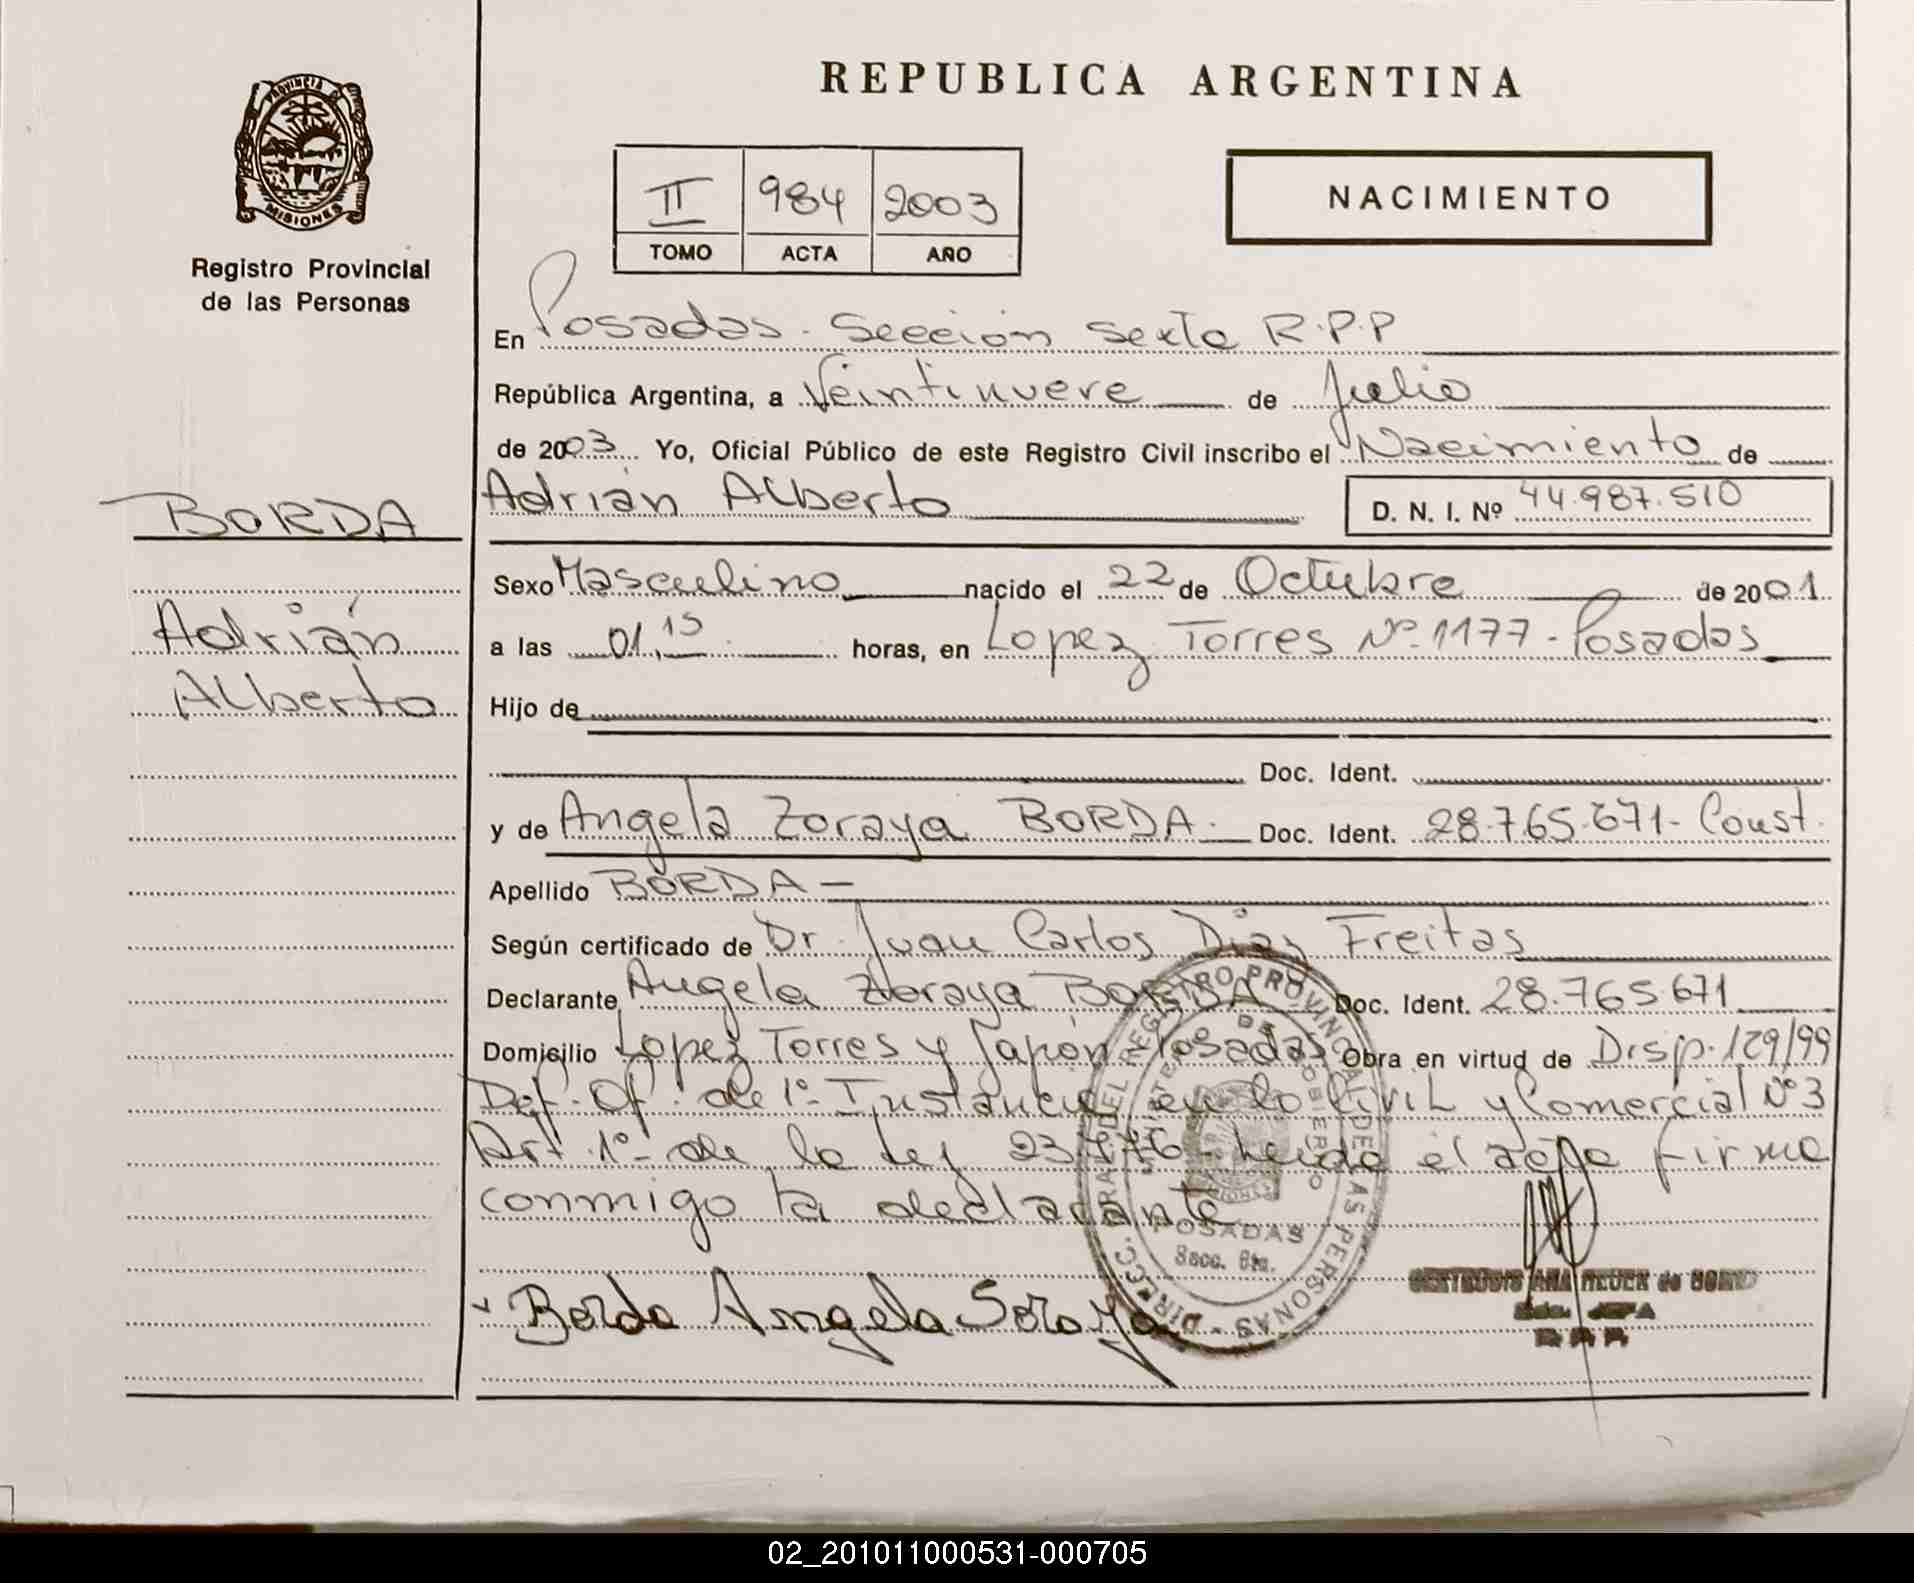 PROVINCIA DE
MISIONES
Registro Provincial
de las Personas
BORDA
Adrián
Alberto
REPUBLICA ARGENTINA
II 984 2003
TOMO ACTA AÑO
NACIMIENTO
En Posadas - Sección Sexta R.P.P
República Argentina, a Veintinueve de Julio
de 2003 Yo, Oficial Público de este Registro Civil inscribo el Nacimiento de
Adrián Alberto D. N. I. Nº 44.987.510
Sexo Masculino nacido el 22 de Octubre de 2001
a las 01,15 horas, en Lopez Torres Nº 1177 - Posadas
Hijo de
Doc. Ident.
y de Angela Zoraya BORDA. Doc. Ident. 28.765.671- Const.
Apellido BORDA -
Según certificado de Dr. Juan Carlos Diaz Freitas
Declarante Angela Zoraya BORDA Doc. Ident. 28.765.671
Domicilio Lopez Torres y Japón Posadas Obra en virtud de Disp. 129/99
Def. Of. de 1º Instancia en lo Civil y Comercial Nº 3
Art. 1º de la Ley 23.776 - leida el acta firma
conmigo la declarante
DIRECC. GRAL. DEL REGISTRO PROVINCIAL DE LAS PERSONAS
POSADAS
Secc. 6ta.
Borda Angela Soraya
R.P.P.
02_201011000531-000705